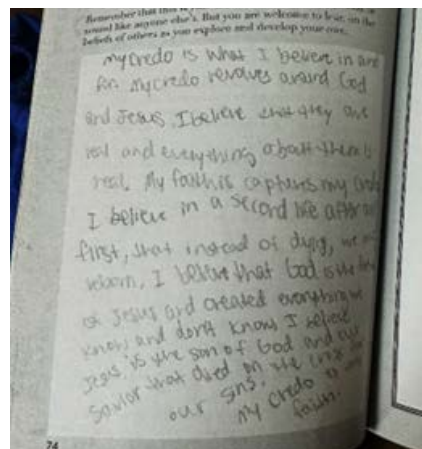 Remember that this is
sound like anyone else's. But you are welcome to lean on the
beliefs of others as you explore and develop your own.
my credo is what I believe in and
for my credo revolves around God
and Jesus I believe that they are
real and everything about them is
real. My faith is captures my credo
I believe in a second life after our
first, that instead of dying, we are
reborn, I believe that God is the
of Jesus and created everything we
know, and don't know, I believe
Jesus, is the son of God and our
savior that died on the cross for
our sins.
my credo is my
faith.
74